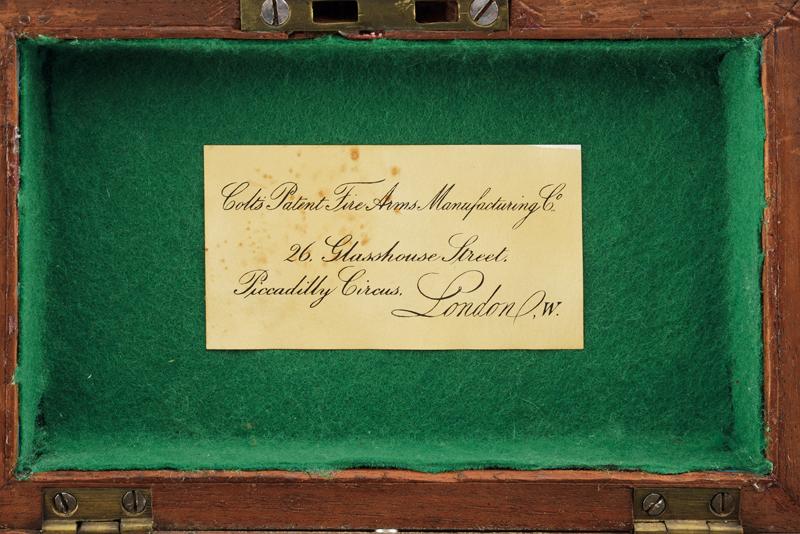 Colts Patent Fire Arms Manufacturing Co.
26, Glasshouse Street.
Piccadilly Circus, London, W.